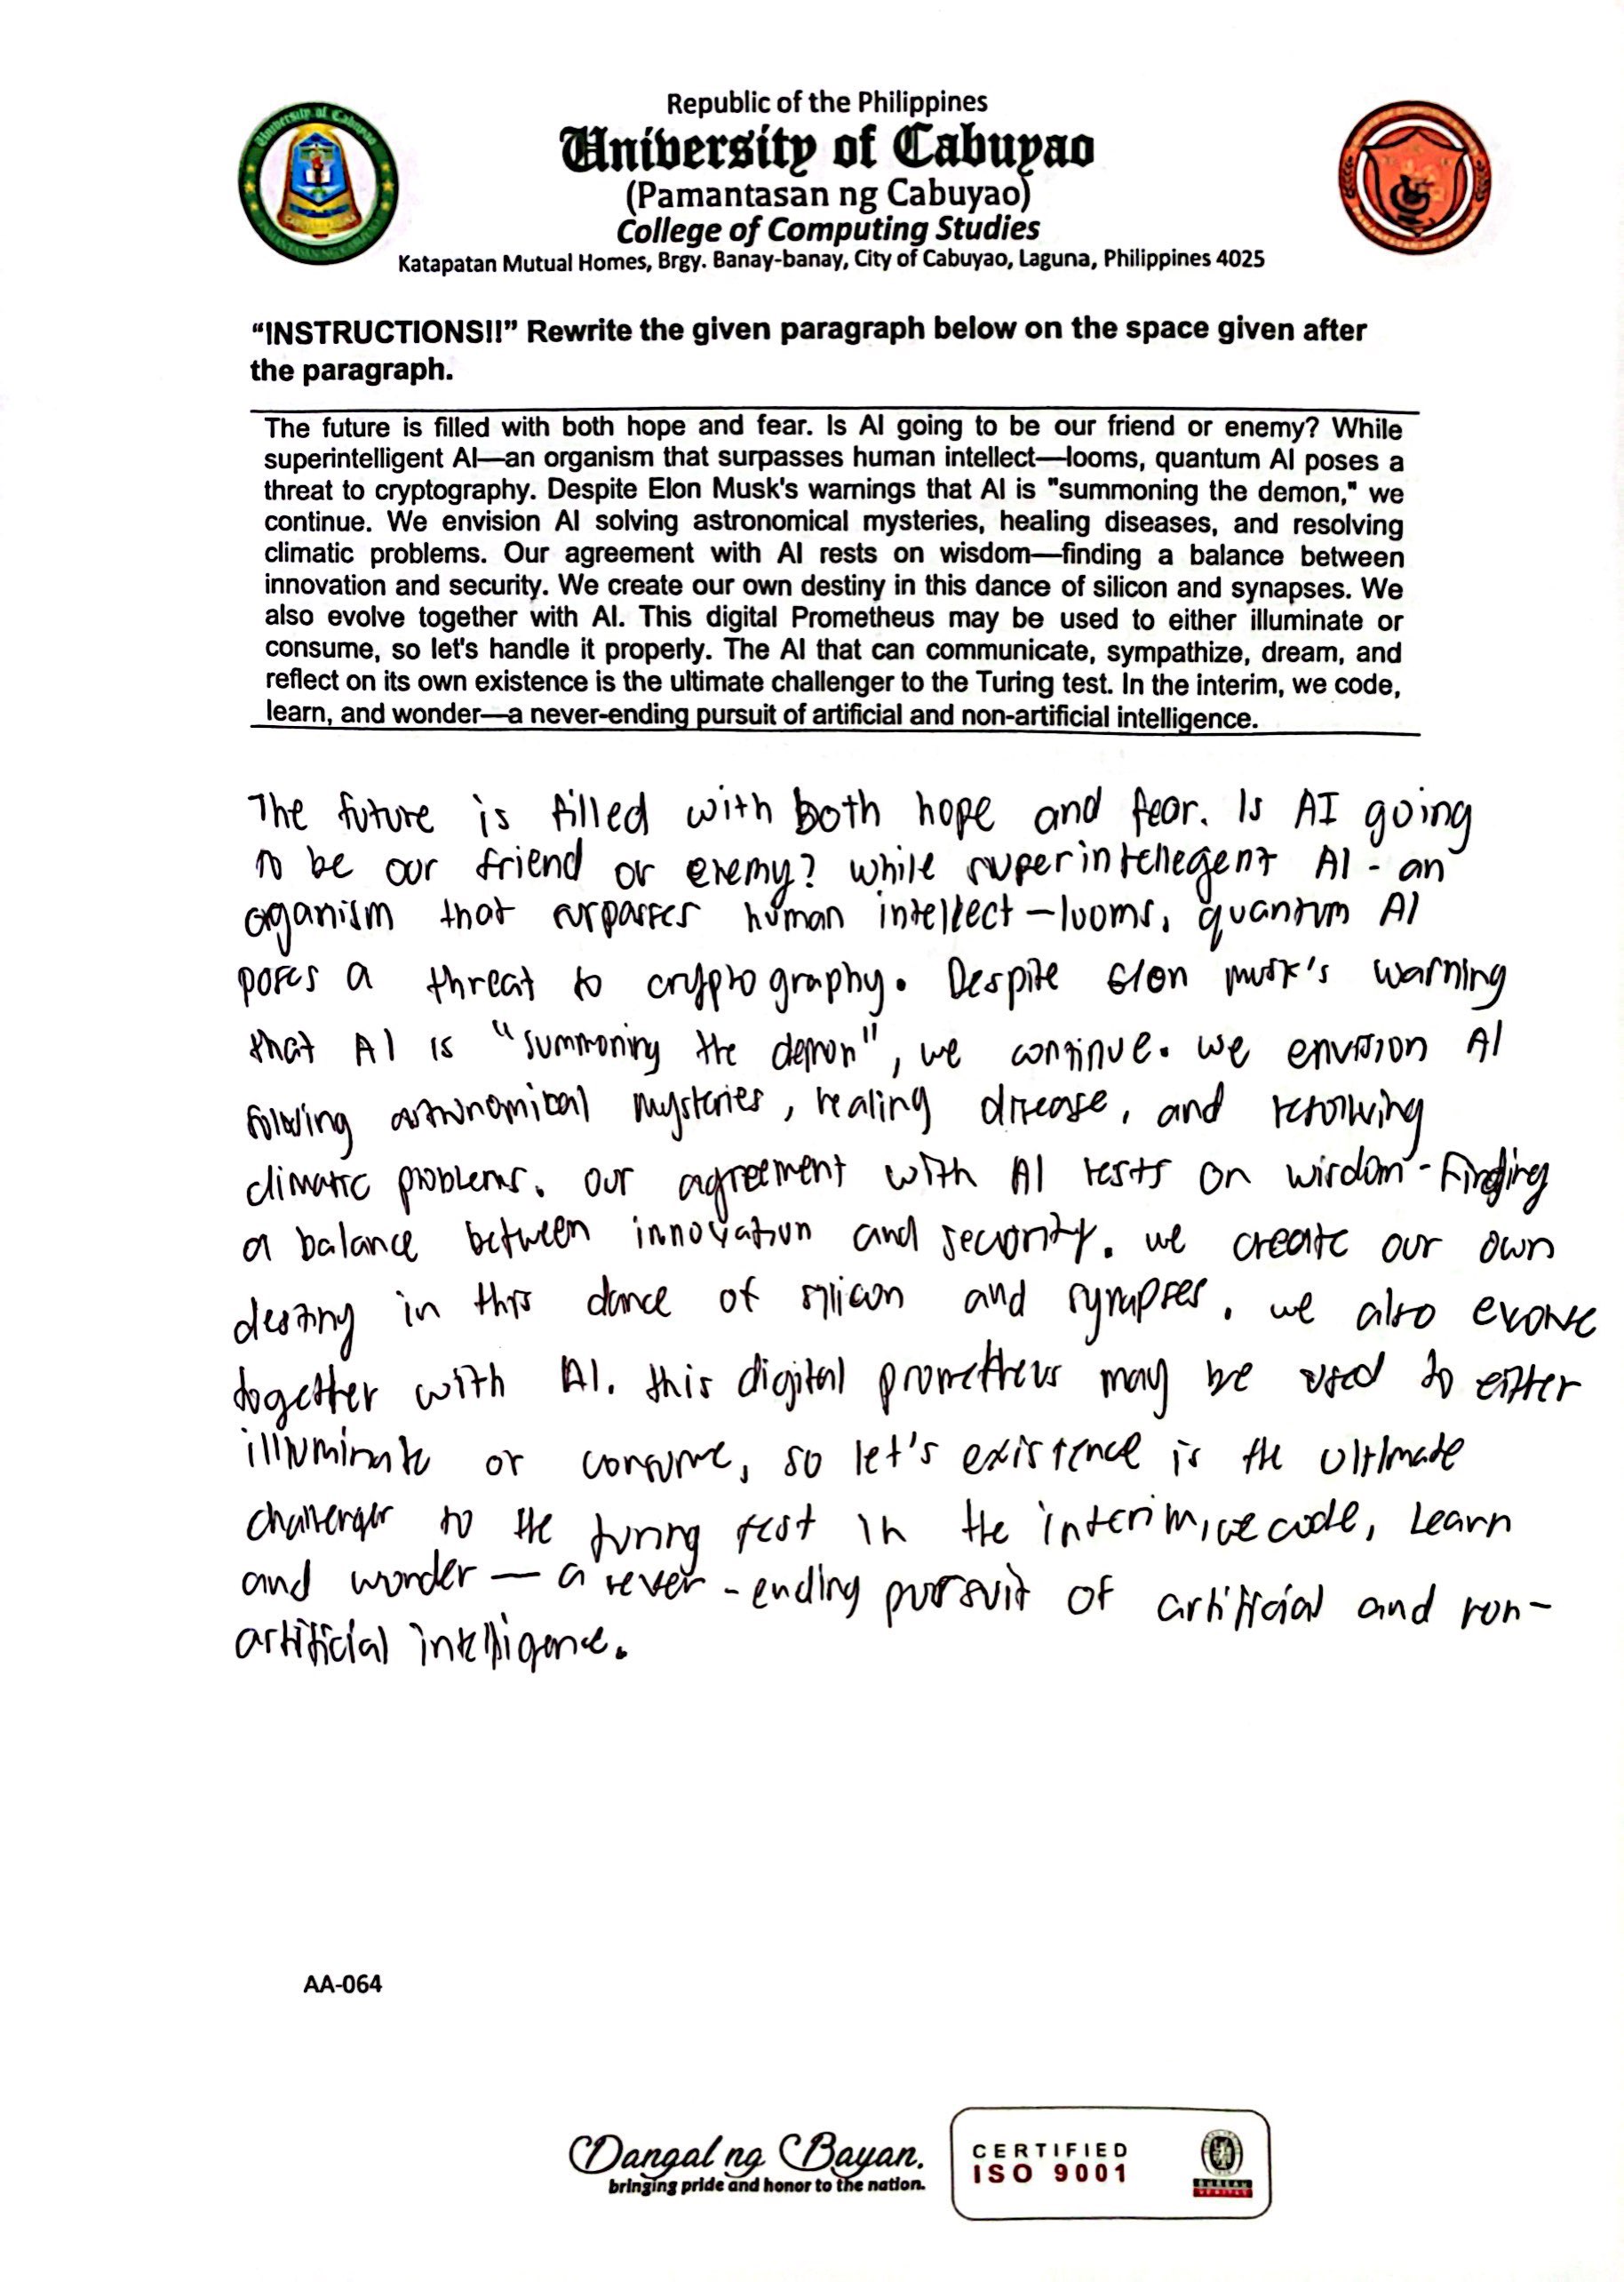 Republic of the Philippines
University of Cabuyao
(Pamantasan ng Cabuyao)
College of Computing Studies
Katapatan Mutual Homes, Brgy. Banay-banay, City of Cabuyao, Laguna, Philippines 4025
“INSTRUCTIONS!!” Rewrite the given paragraph below on the space given after
the paragraph.
The future is filled with both hope and fear. Is AI going to be our friend or enemy? While
superintelligent AI—an organism that surpasses human intellect—looms, quantum AI poses a
threat to cryptography. Despite Elon Musk's warnings that AI is "summoning the demon," we
continue. We envision AI solving astronomical mysteries, healing diseases, and resolving
climatic problems. Our agreement with AI rests on wisdom—finding a balance between
innovation and security. We create our own destiny in this dance of silicon and synapses. We
also evolve together with AI. This digital Prometheus may be used to either illuminate or
consume, so let's handle it properly. The AI that can communicate, sympathize, dream, and
reflect on its own existence is the ultimate challenger to the Turing test. In the interim, we code,
learn, and wonder—a never-ending pursuit of artificial and non-artificial intelligence.
The future is filled with both hope and fear. Is AI going
to be our friend or enemy? while superintellegent AI - an
oganism that surpasses human intellect - looms, quantum AI
poses a threat to cryptography. Despite Elon musk's warning
that AI is "summoning the demon", we continue. we envision AI
astronomical mysteries, healing disease, and resolving
climatic problems. our agreement with AI rests on wisdom - Finding
a balance between innovation and security. we create our own
destiny in this dance of silicon and synapses. we also evolve
together with AI. this digital prometheus may be used to either
illuminate or consume, so let's existence is the ultimate
challenger to the turing test in the interim, we code, learn
and wonder — a never - ending pursuit of artificial and non-
artificial intelligence.
AA-064
Dangal ng Bayan.
bringing pride and honor to the nation.
CERTIFIED
ISO 9001